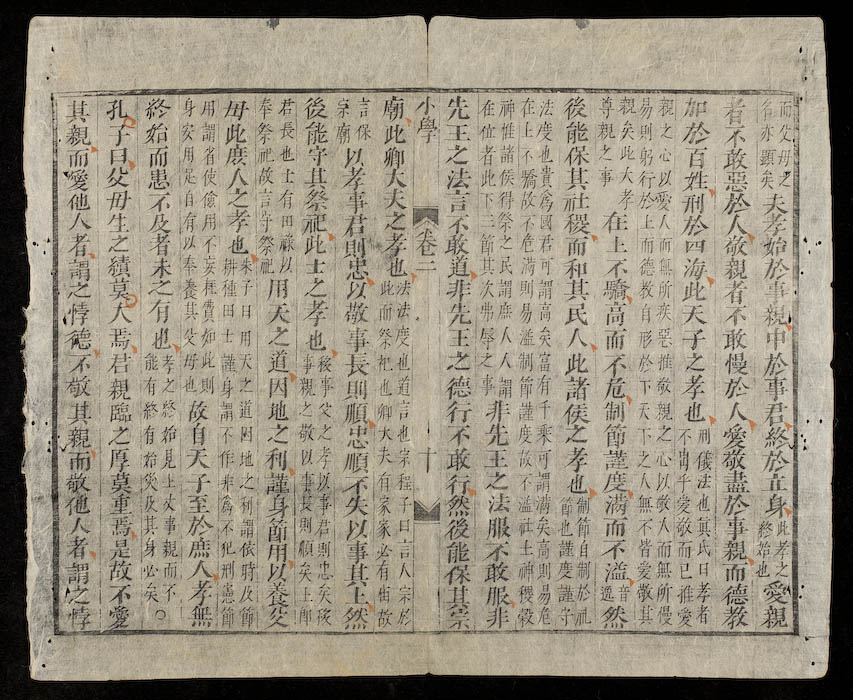 而父母之名亦顯矣夫孝始於事親中於事君終於立身此孝之終始也愛親
者不敢惡於人敬親者不敢慢於人愛敬盡於事親而德教
加於百姓刑於四海此天子之孝也刑儀法也眞氏曰孝者不出乎愛敬而已推愛
親之心以愛人而無所疾惡推敬親之心以敬人而無所慢易則躬行於上而德教自形於下天下之人無不皆愛敬其
親矣此大孝尊親之事在上不驕高而不危制節謹度滿而不溢音逸然
後能保其社稷而和其民人此諸侯之孝也制節自制於礼節也謹度謹守
法度也貴爲國君可謂高矣富有千乘可謂滿矣高則易危在上不驕故不危滿則易溢制節謹度故不溢社土神稷穀
神惟諸侯得祭之民謂庶人人謂在位者此下三節其次弗辱之事非先王之法服不敢服非
先王之法言不敢道非先王之德行不敢行然後能保其宗
小學 卷二 十
廟此卿大夫之孝也法法度也道言也宗程子曰言人宗於此而祭祀也卿大夫有家家必有廟故
言保宗廟以孝事君則忠以敬事長則順忠順不失以事其上然
後能守其祭祀此士之孝也移事父之孝以事君則忠矣移事親之敬以事長則順矣上卽
君長也士有田祿以奉祭祀故言守祭祀用天之道因地之利謹身節用以養父
母此庶人之孝也朱子曰用天之道因地之利謂依時及節耕種田土謹身謂不作非爲不犯刑憲節
用謂省使儉用不妄耗費如此則身安用足自有以奉養其父母也故自天子至於庶人孝無
終始而患不及者未之有也孝之終始見上文事親而不能有終有始災及其身必矣○
孔子曰父母生之續莫大焉君親臨之厚莫重焉是故不愛
其親而愛他人者謂之悖德不敬其親而敬他人者謂之悖